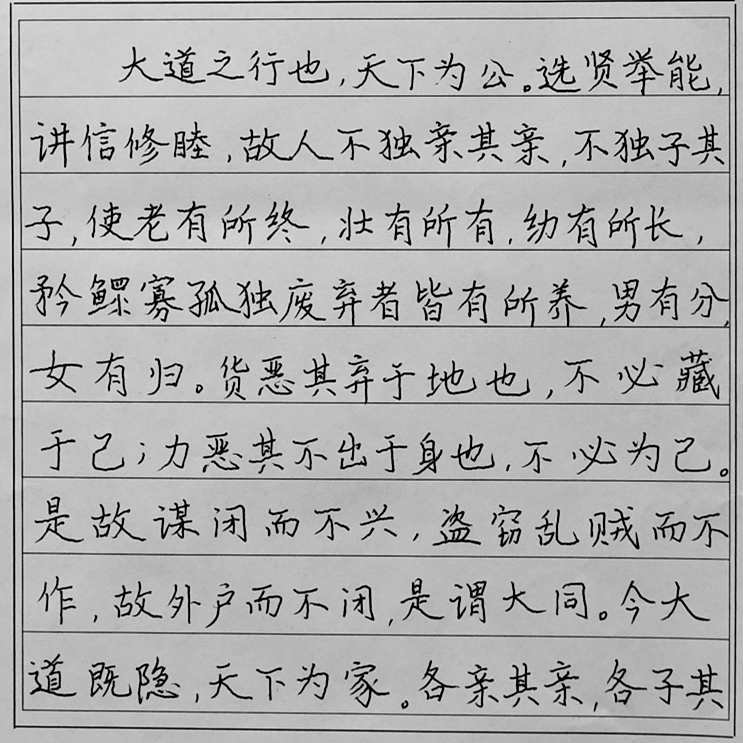 大道之行也,天下为公。选贤举能,
讲信修睦,故人不独亲其亲,不独子其
子,使老有所终,壮有所有,幼有所长,
矜鳏寡孤独废弃者皆有所养,男有分,
女有归。货恶其弃于地也,不必藏
于己;力恶其不出于身也,不必为己。
是故谋闭而不兴,盗窃乱贼而不
作,故外户而不闭,是谓大同。今大
道既隐,天下为家。各亲其亲,各子其